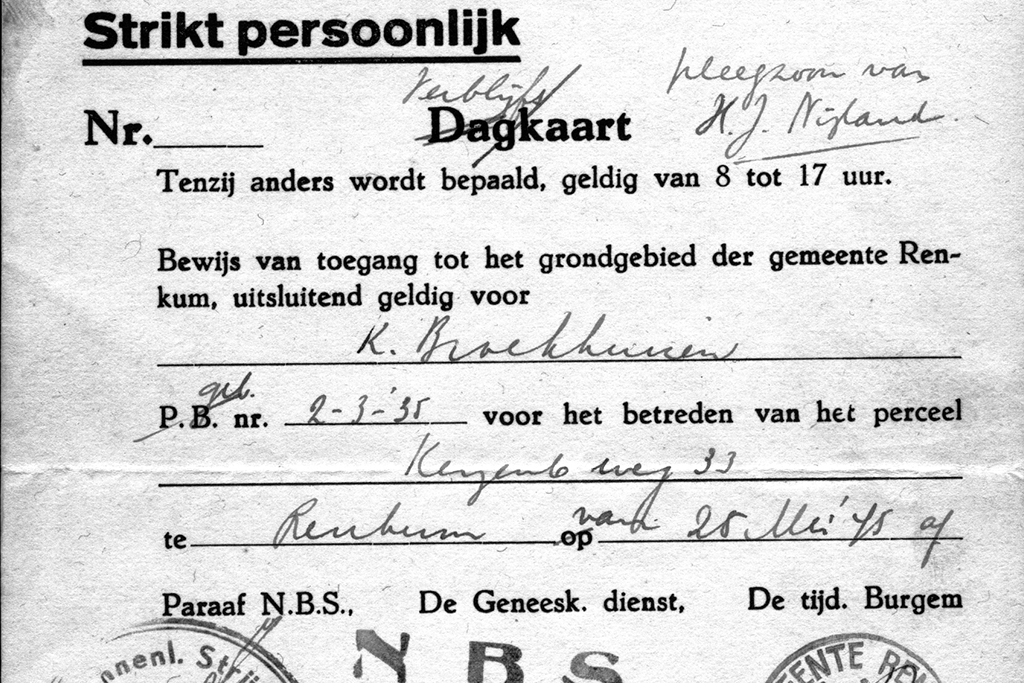 Strikt persoonlijk
Verblijfs
pleegzoon van
H. J. Nijland.
Nr. Dagkaart
Tenzij anders wordt bepaald, geldig van 8 tot 17 uur.
Bewijs van toegang tot het grondgebied der gemeente Ren-
kum, uitsluitend geldig voor
K. Broekhuizen
geb.
P.B. nr. 2-3-'35 voor het betreden van het perceel
weg 33
te Renkum op van 25 Mei '45 af
Paraaf N.B.S., De Geneesk. dienst, De tijd. Burgem
nnenl. Strij
N B S
EENTE REN